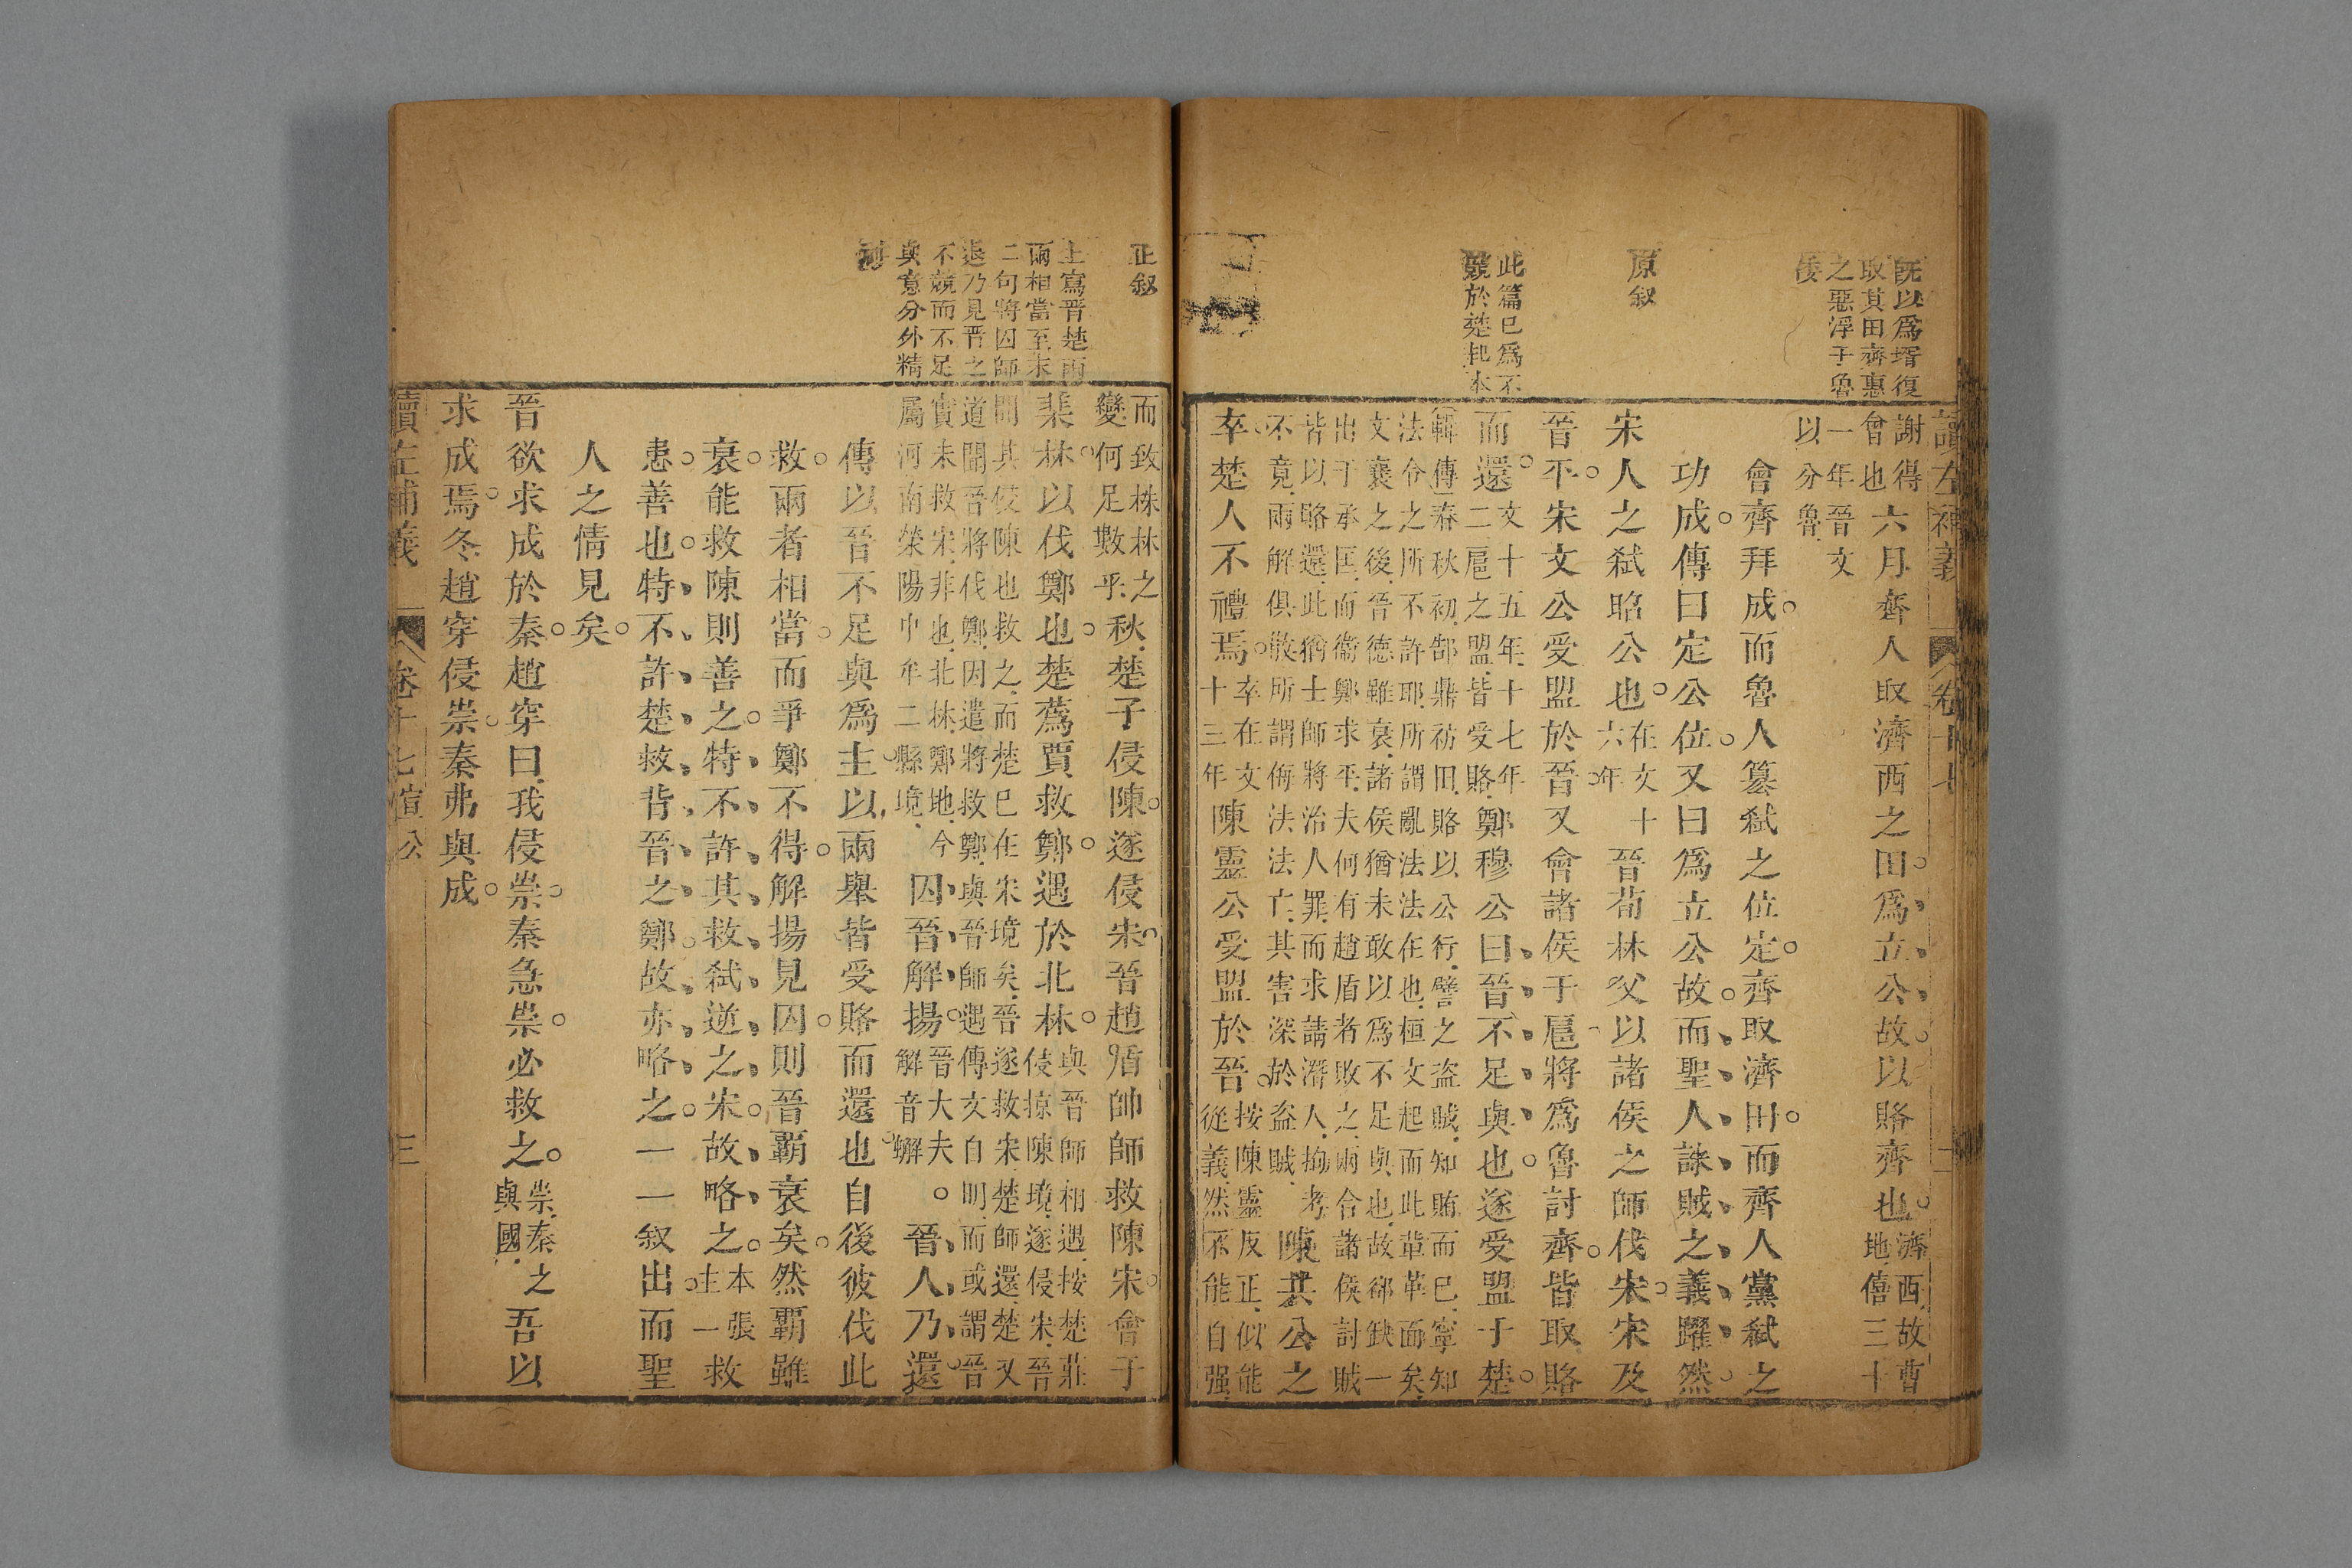 既以爲壻復
取其田齊惠
之惡浮于魯
倭
原叙
此篇已爲不
競於楚起本
讀左補義 卷十七 二
謝得六月齊人取濟西之田爲立公故以賂齊也濟西故曹
會也地僖三十
一年晉文
以分魯
會齊拜成而魯人簒弑之位定齊取濟田而齊人黨弑之
功成傳曰定公位又曰爲立公故而聖人誅賊之義躍然
宋人之弑昭公也在文十六年晉荀林父以諸侯之師伐宋宋及
晉平宋文公受盟於晉又會諸侯于扈將爲魯討齊皆取賂
而還文十五年十七年二扈之盟皆受賂鄭穆公曰晉不足與也遂受盟于楚
輯傳春秋初郜鼎祊田賂以公行譬之盜賊知賄而已寧知
法令之所不許耶所謂亂法法在也桓文起而此輩革面矣
文襄之後晉德雖衰諸侯猶未敢以爲不足與也故郤缺一
出于承匡而衞鄭求平夫何有趙盾者敗之兩合諸侯討賊
皆以賂還此猶士師將治人罪而求請潛人拘考
不竟兩解俱散所謂侮法法亡其害深於盜賊陳共公之
卒楚人不禮焉卒在文十三年陳靈公受盟於晉按陳靈反正似能
從義然不能自强
正叙
上寫晉楚兩
兩相當至末
二句將囚師
退乃見晉之
不競而不足
與意分外精
神
而致株林之
變何足數乎秋楚子侵陳遂侵宋晉趙盾帥師救陳宋會于
棐林以伐鄭也楚蔿賈救鄭遇於北林與晉師相遇按楚莊
侵掠陳境遂侵宋晉
聞其侵陳也救之而楚已在宋境矣晉遂救宋楚師還楚又
道聞晉將伐鄭因遣將救鄭與晉師遇傳文自明而或謂晉
實未救宋非也北林鄭地今
屬河南滎陽中牟二縣境囚晉解揚晉大夫解音蠏。晉人乃還
傳以晉不足與爲主以兩舉皆受賂而還也自後彼伐此
救兩者相當而爭鄭不得解揚見囚則晉覇衰矣然覇雖
衰能救陳則善之特不許其救弑逆之宋故略之本張主一救
患善也特不許楚救背晉之鄭故亦略之一一叙出而聖
人之情見矣
晉欲求成於秦趙穿曰我侵崇秦急崇必救之崇秦之與國吾以
求成焉冬趙穿侵崇秦弗與成
讀左補義 卷十七宣公 三